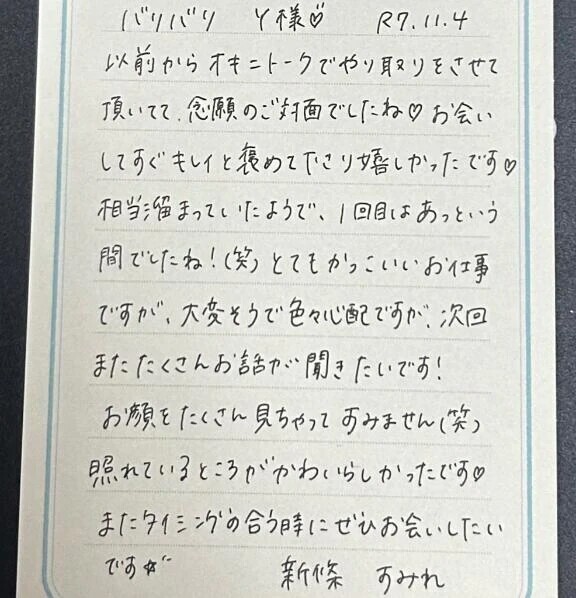 バリバリ Y様♡ R7.11.4
以前からオキニトークでやり取りをさせて
頂いてて、念願のご対面でしたね♡お会い
してすぐキレイと褒めて下さり嬉しかったです♡
相当溜まっていたようで、1回目はあっという
間でしたね!(笑)とてもかっこいいお仕事
ですが、大変そうで色々心配ですが、次回
またたくさんお話が聞きたいです!
お顔をたくさん見ちゃってすみません(笑)
照れているところがかわいらしかったです♡
またタイミングの合う時にぜひお会いしたい
です☆ 新條 すみれ